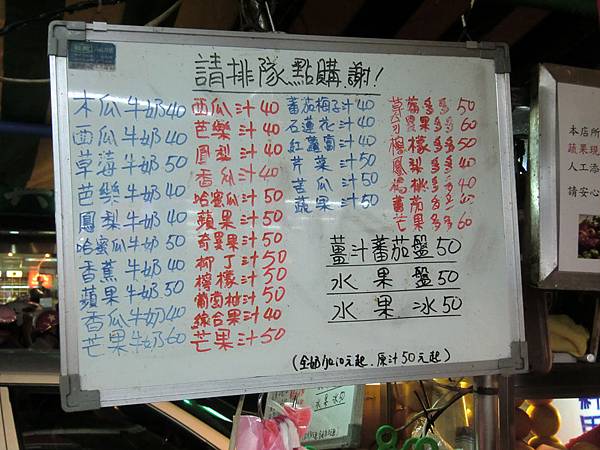 請排隊點購,謝!
木瓜牛奶40
西瓜牛奶40
草莓牛奶50
芭樂牛奶40
鳳梨牛奶40
哈蜜瓜牛奶50
香蕉牛奶40
蘋果牛奶50
香瓜牛奶40
芒果牛奶60
西瓜汁40
芭樂汁40
鳳梨汁40
香瓜汁40
哈蜜瓜汁50
蘋果汁50
奇異果汁50
柳丁汁50
檸檬汁50
葡萄柚汁50
綜合果汁40
芒果汁50
蕃茄梅子汁40
石蓮花汁40
紅蘿蔔汁40
芹菜汁50
苦瓜汁50
蔬果汁50
草莓多多50
奇異果多多60
檸檬多多50
鳳梨多多40
楊桃多多40
蕃茄多多40
芒果多多60
薑汁蕃茄盤50
水果盤50
水果冰50
(全奶加10元起.原汁50元起)
本店所
蔬果現
人工添
請安心
水果冰 50